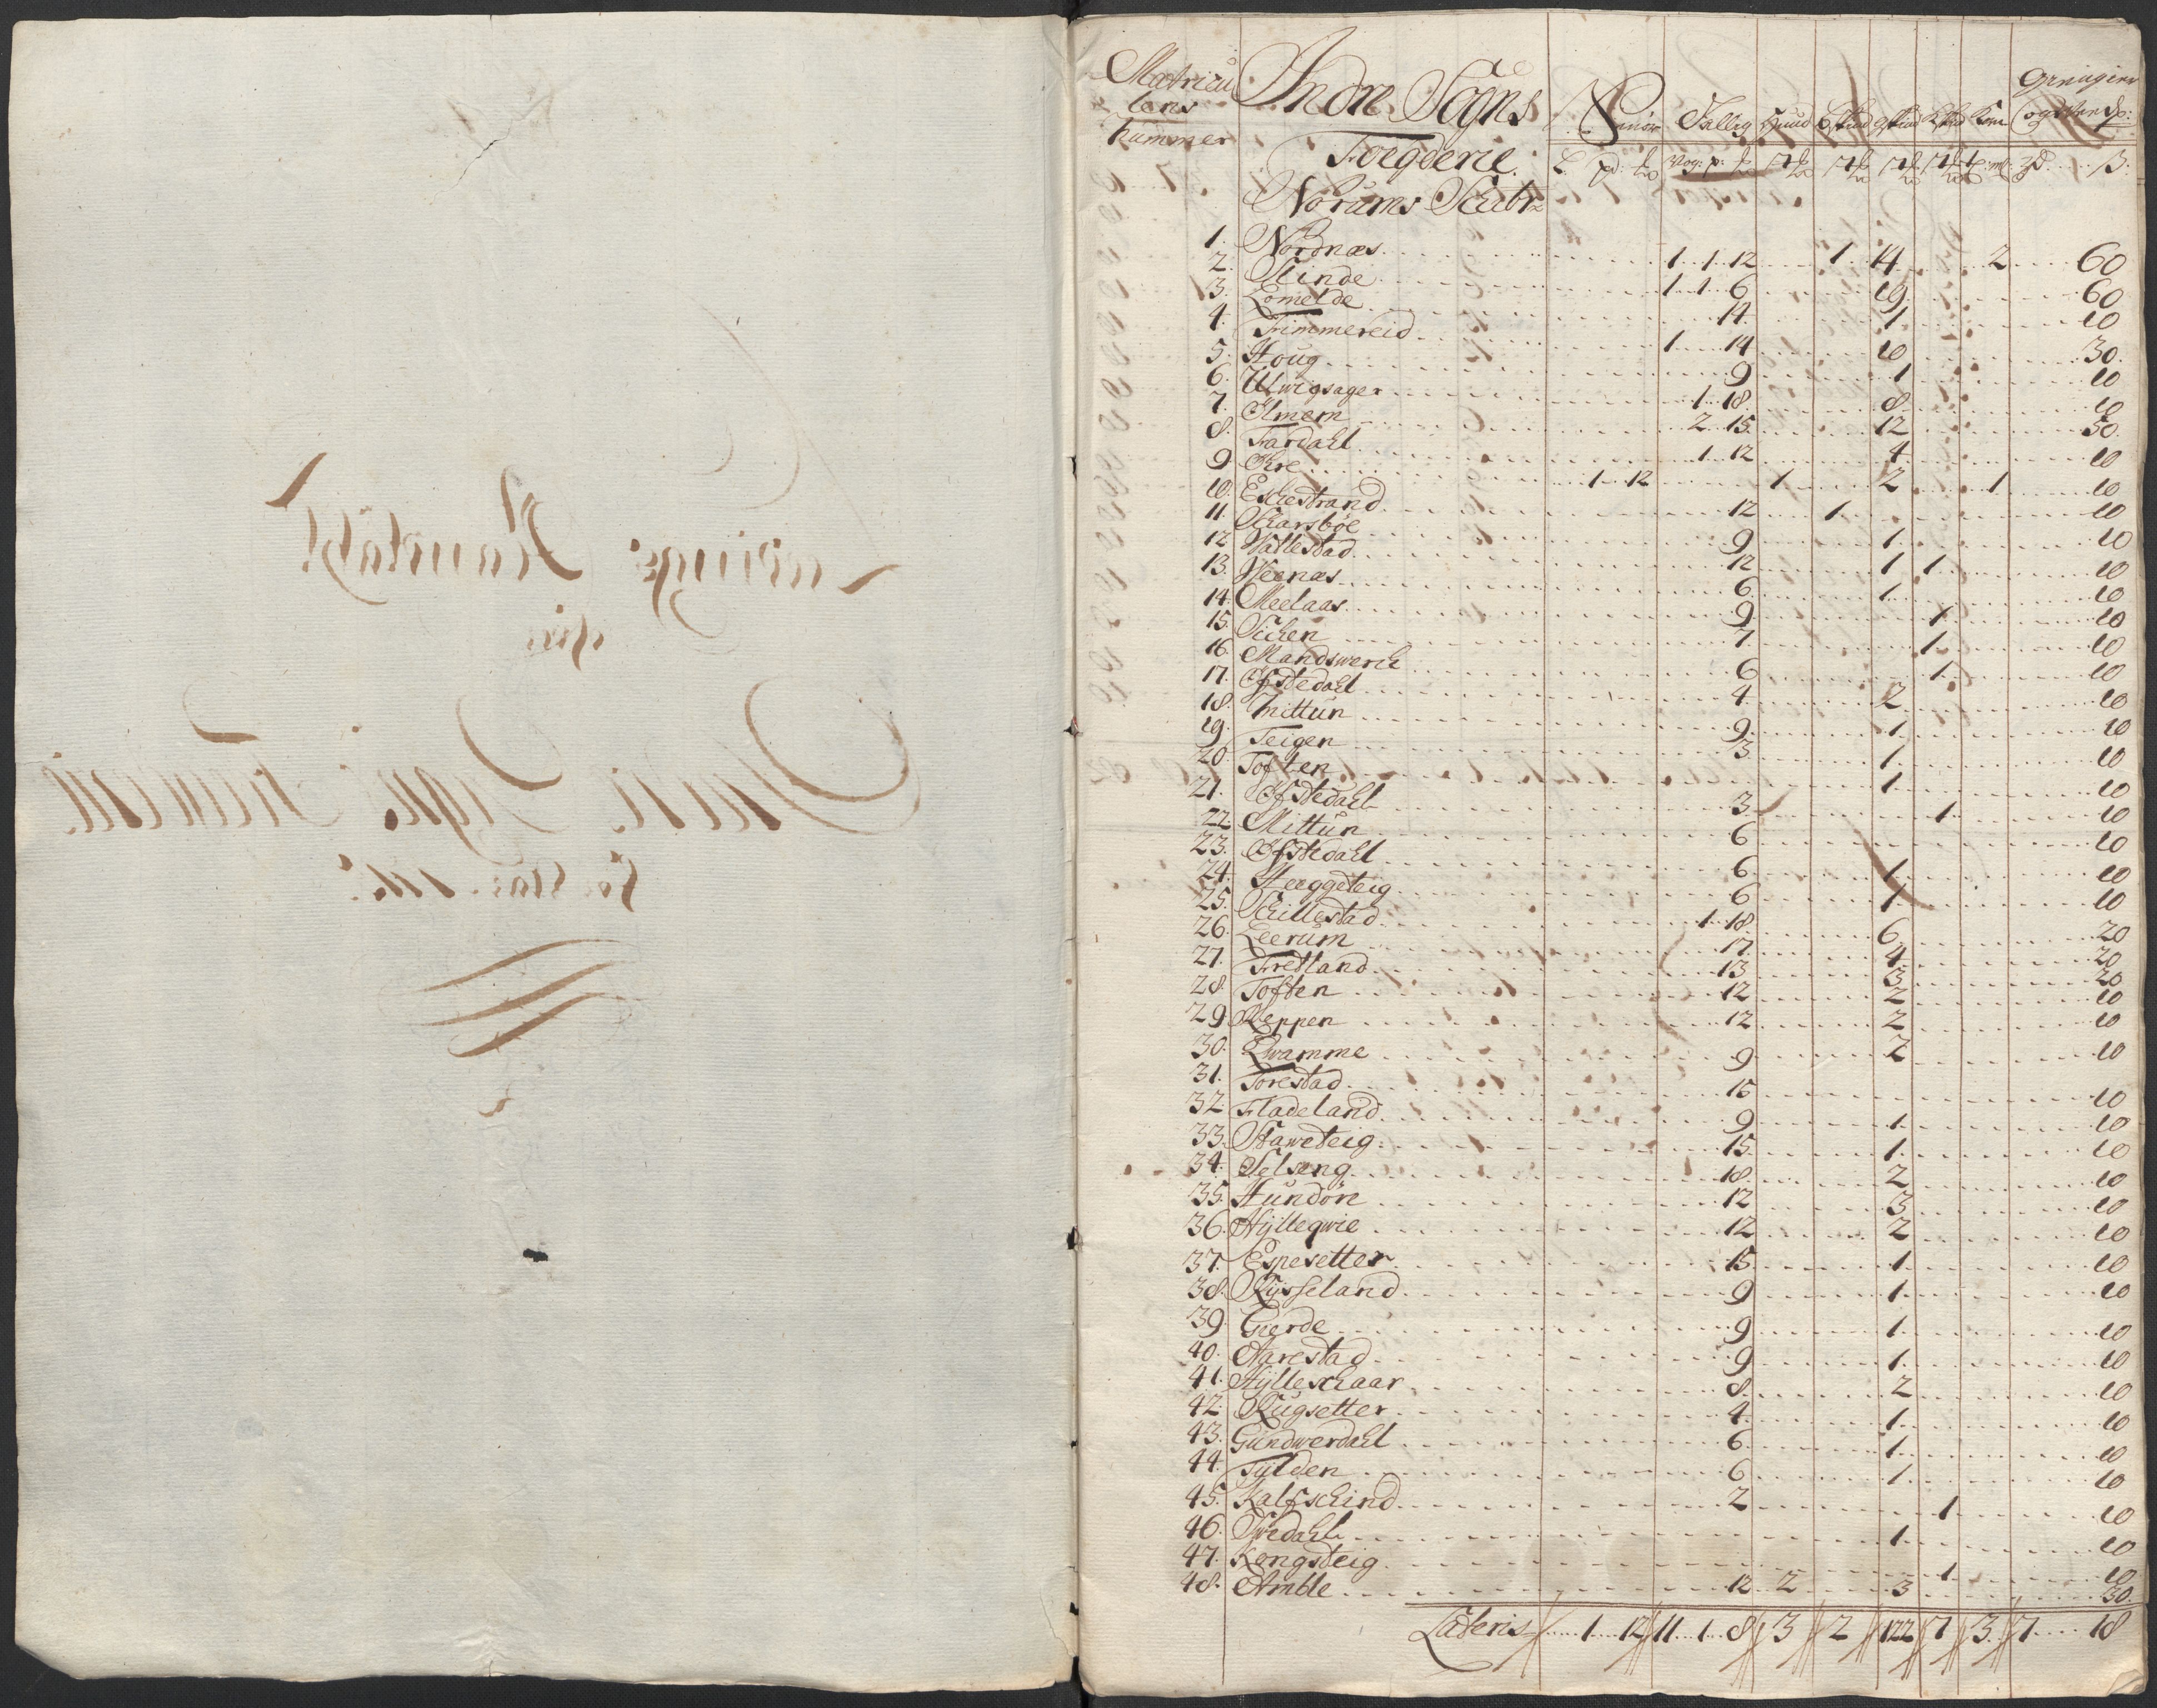 Matricu
lens
Nummer
Indre Sogns
Foegderie.
Norums Schibr:
Smør Talleg Huud Bskind Gskind Kskind Korn
og
L. pd: Vog: p:
1. Nordnæs 1 1 12 1 14 2 60
2. Slinde 1 1 6 19 60
3. Lomelde 14 1 10
4. Frimmereid 1 14 10 30
5. Houg 9 1 10
6. Ulwigsager 1 18 8 10
7. Ilmem 2 15 12 50
8. Fardahl 1 12 4 10
9 Øhre 1 12 1 2 1 10
10. Eschestrand 12 1 10
11. Scharsbøe 9 1 10
12. Vallestad 12 1 1 10
13. Weenæs 6 1 10
14. Meelaas 9 1 10
15. Sichen 7 1 10
16. Mandswerch 6 1 10
17. Ofstedahl 4 2 10
18. Mittun 9 1 10
19. Teigen 3 1 10
20. Toften 1 10
21. Ofstedahl 3 1 10
22. Mittun 6 10
23. Ofstedahl 6 1 10
24. Heeggeteig 6 1 10
25. Schillestad 1 18 6 20
26. Leerum 17 4 20
27. Fretland 13 3 20
28. Toften 12 2 10
29. Reppen 12 2 10
30. Qwamme 9 2 10
31. Torestad 15 10
32. Fladeland 9 1 10
33. Staweteig 15 1 10
34. Selseng 18 2 10
35. Hundøre 12 3 10
36. Hyllegwie 12 2 10
37. Espesetter 15 1 10
38. Rysseland 9 1 10
39. Gierde 9 1 10
40. Aarestad 9 1 10
41. Hylleschaar 8 2 10
42. Rugsetter 4 1 10
43. Gundwerdahl 6 1 10
44. Tylden 6 1 10
45. Kalfschind 2 1 10
46. Tredahl 1 10
47. Kongsteig 1 10
48. Amble 12 2 3 30
Lateris 1 12 11 1 8 3 2 122 7 3 7 18